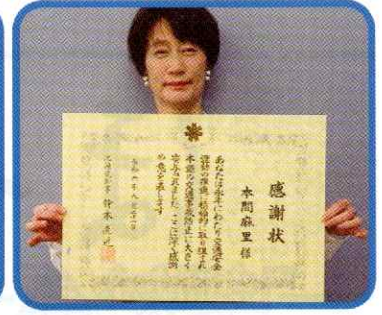 感謝状
本間麻里様
あなたは永年にわたり交通安全
運動の推進に積極的に取り組まれ
本県の交通事故防止に大きく
寄与されました ここに深く感謝
の意を表します